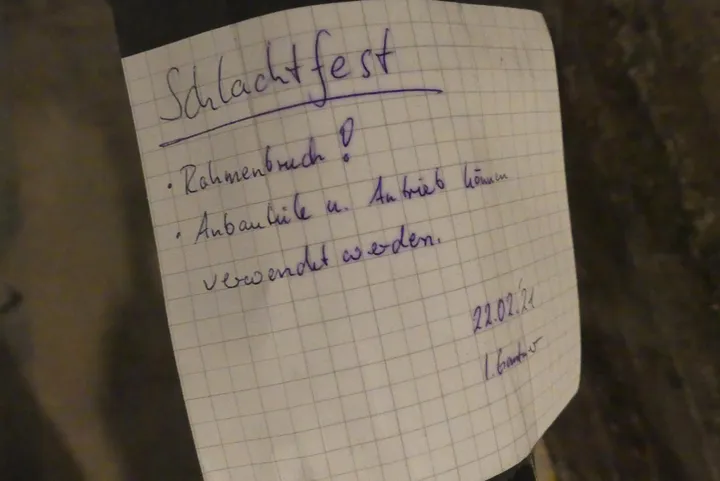 Schlachtfest
• Rahmenbruch !
• Anbauteile u. Antrieb können
verwendet werden.
22.02.'21